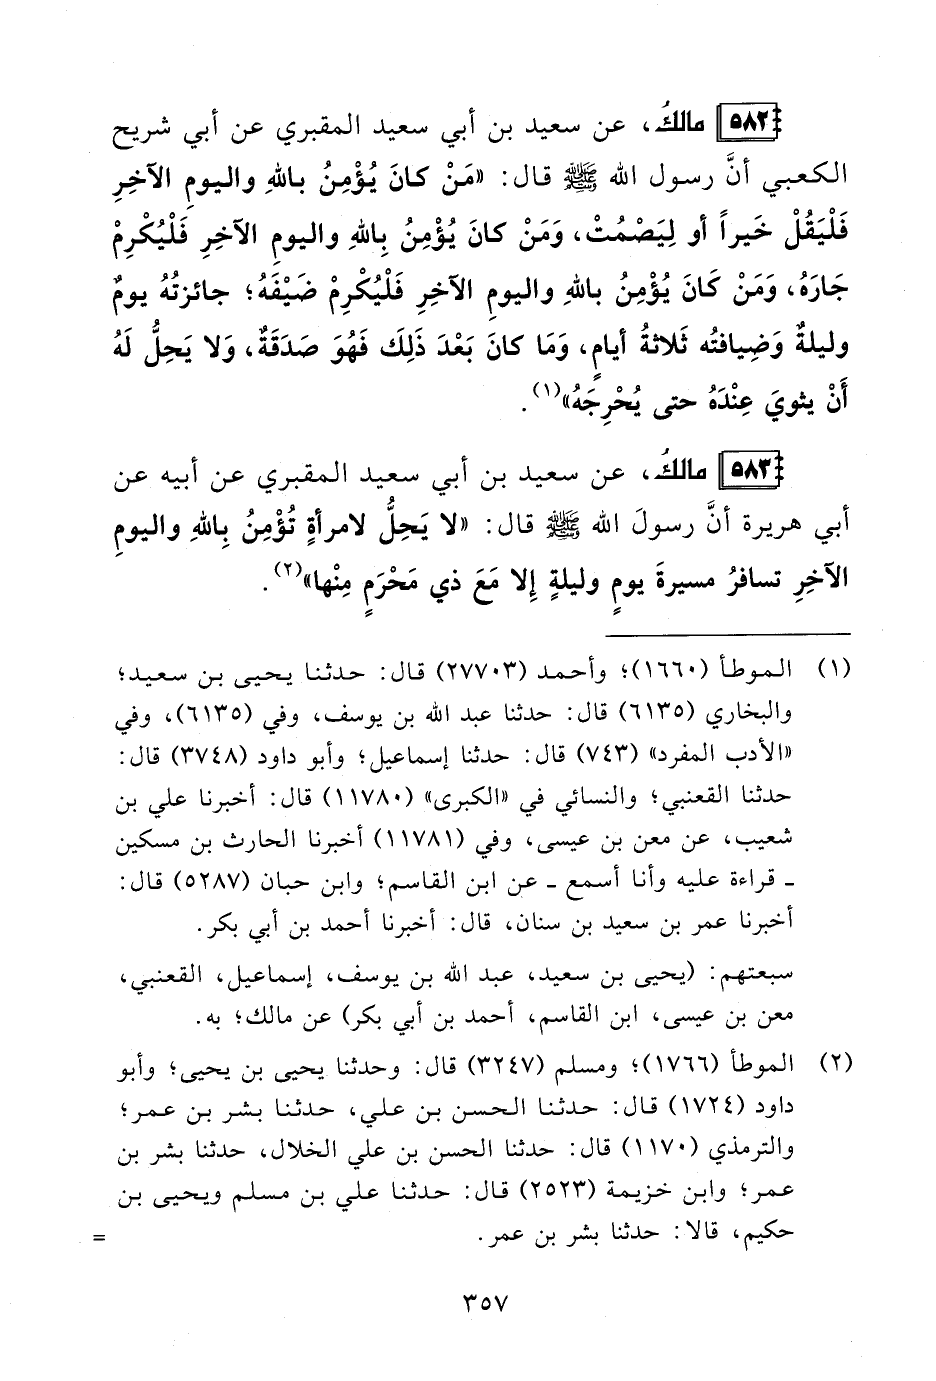 ٥٨٢ مالكُ، عن سعيد بن أبي سعيد المقبري عن أبي شريح
الكعبي أنَّ رسول الله ﷺ قال: «مَنْ كانَ يُؤْمِنُ باللهِ واليومِ الآخِرِ
فَلْيَقُلْ خَيراً أو لِيَصْمُتْ، وَمَنْ كانَ يُؤْمِنُ بِاللهِ واليومِ الآخِرِ فَلْيُكْرِمْ
جَارَهُ، وَمَنْ كَانَ يُؤْمِنُ باللهِ واليومِ الآخِرِ فَلْيُكْرِمْ ضَيْفَهُ؛ جائزتُهُ يومٌ
وليلةٌ وَضِيافتُه ثَلاثةُ أيامٍ، وَمَا كانَ بَعْدَ ذَلِكَ فَهُوَ صَدَقَةٌ، وَلا يَحِلُّ لَهُ
أَنْ يثويَ عِنْدَهُ حتى يُحْرِجَهُ»(١).
٥٨٣ مالكُ، عن سعيد بن أبي سعيد المقبري عن أبيه عن
أبي هريرة أنَّ رسولَ الله ﷺ قال: «لا يَحِلُّ لامرأةٍ تُؤْمِنُ بِاللهِ واليومِ
الآخِرِ تسافرُ مسيرةَ يومٍ وليلةٍ إِلا مَعَ ذي مَحْرَمٍ مِنْها»(٢).
(١) الموطأ (١٦٦٠)؛ وأحمد (٢٧٧٠٣) قال: حدثنا يحيى بن سعيد؛
والبخاري (٦١٣٥) قال: حدثنا عبد الله بن يوسف، وفي (٦١٣٥)، وفي
«الأدب المفرد» (٧٤٣) قال: حدثنا إسماعيل؛ وأبو داود (٣٧٤٨) قال:
حدثنا القعنبي؛ والنسائي في «الكبرى» (١١٧٨٠) قال: أخبرنا علي بن
شعيب، عن معن بن عيسى، وفي (١١٧٨١) أخبرنا الحارث بن مسكين
ـ قراءة عليه وأنا أسمع ـ عن ابن القاسم؛ وابن حبان (٥٢٨٧) قال:
أخبرنا عمر بن سعيد بن سنان، قال: أخبرنا أحمد بن أبي بكر.
سبعتهم: (يحيى بن سعيد، عبد الله بن يوسف، إسماعيل، القعنبي،
معن بن عيسى، ابن القاسم، أحمد بن أبي بكر) عن مالك؛ به.
(٢) الموطأ (١٧٦٦)؛ ومسلم (٣٢٤٧) قال: وحدثنا يحيى بن يحيى؛ وأبو
داود (١٧٢٤) قال: حدثنا الحسن بن علي، حدثنا بشر بن عمر؛
والترمذي (١١٧٠) قال: حدثنا الحسن بن علي الخلال، حدثنا بشر بن
عمر؛ وابن خزيمة (٢٥٢٣) قال: حدثنا علي بن مسلم ويحيى بن
حكيم، قالا: حدثنا بشر بن عمر. =
٣٥٧